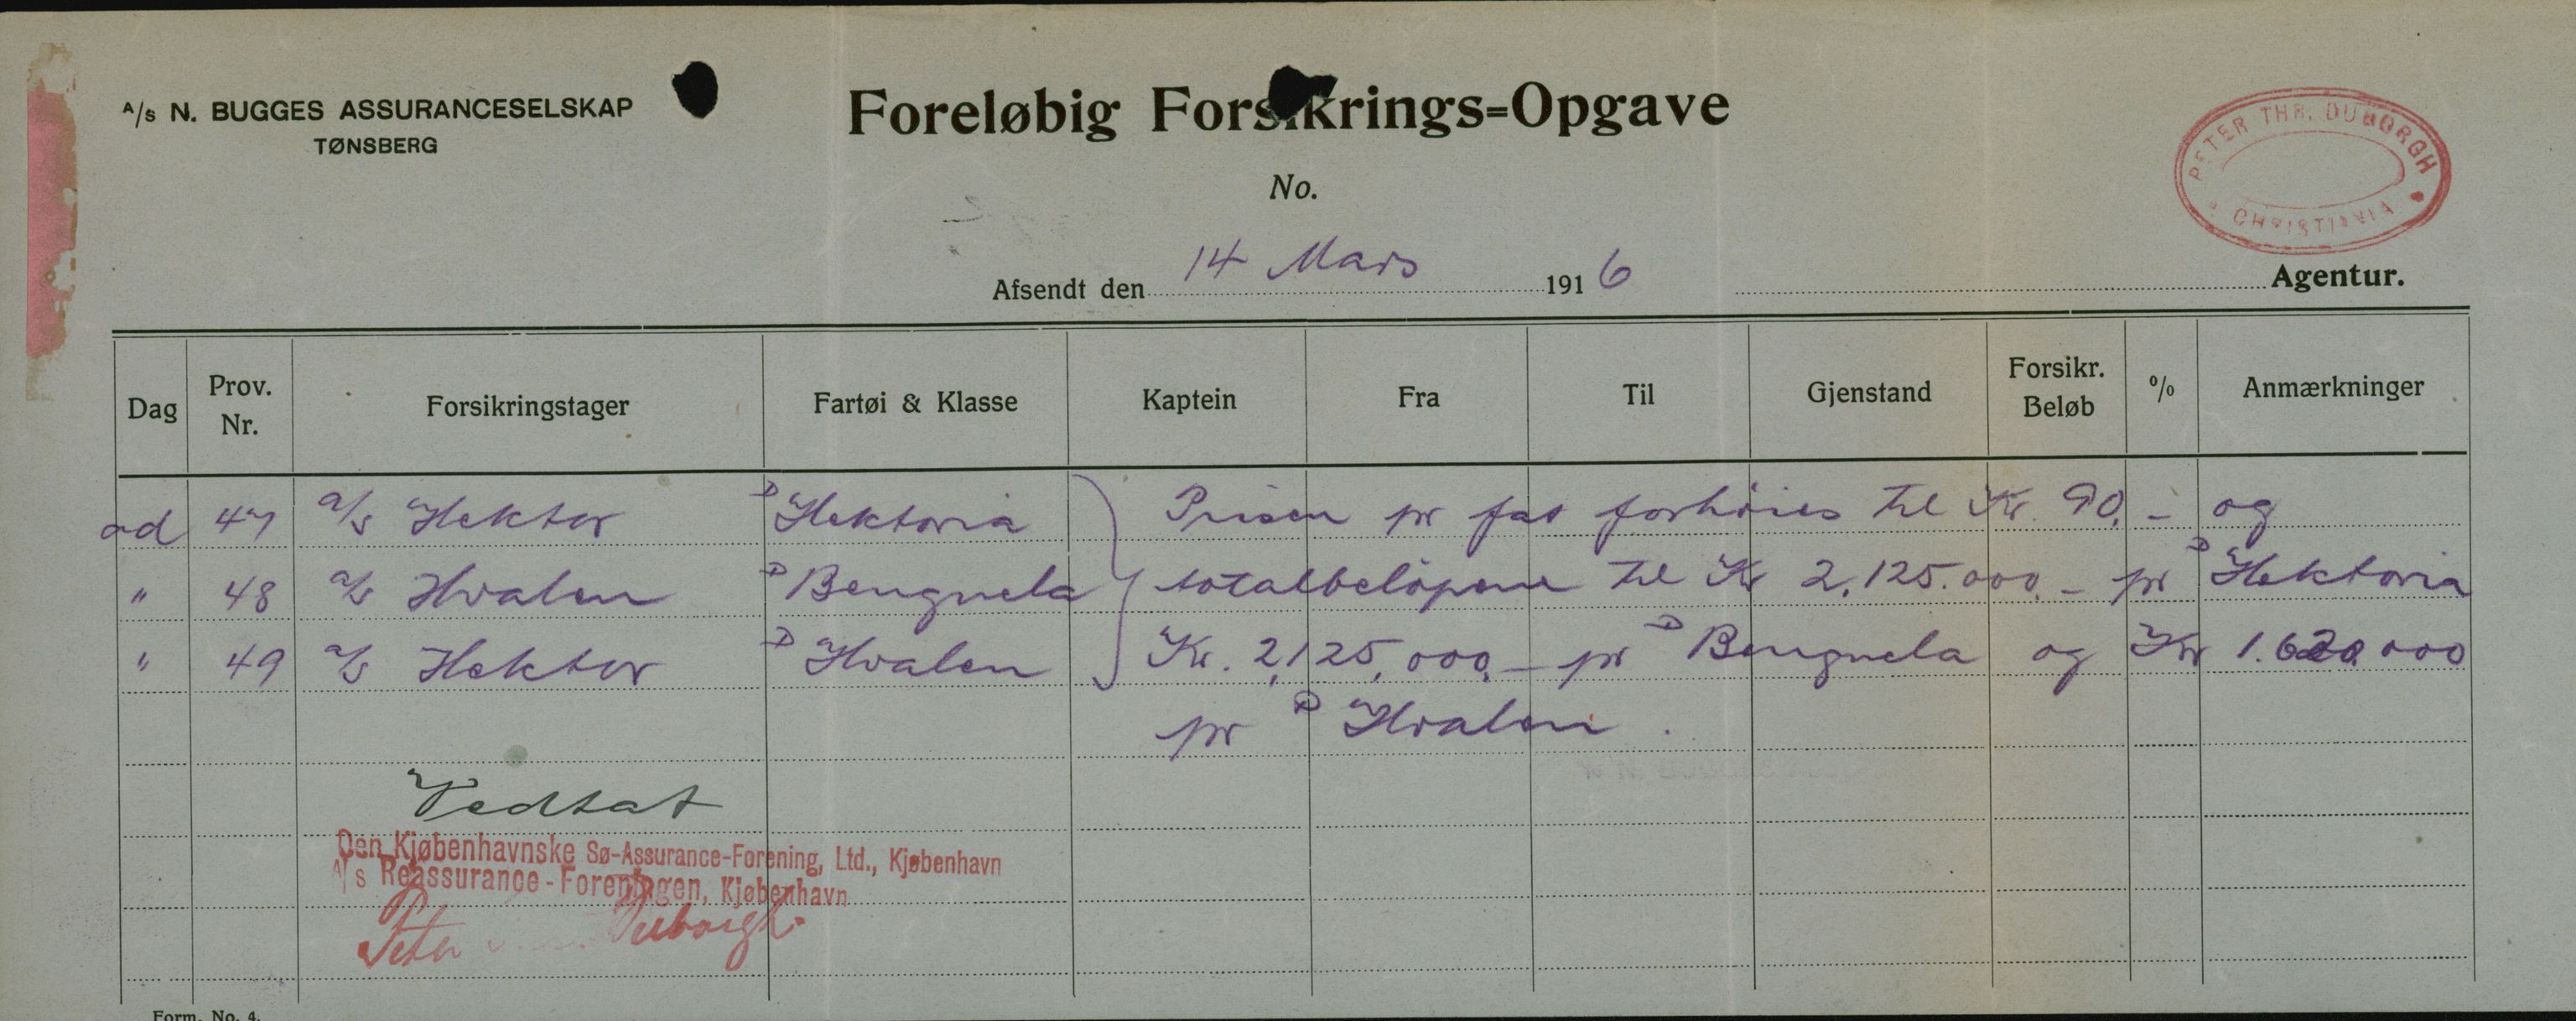 A/s N. BUGGES ASSURANCESELSKAP
TØNSBERG
Foreløbig Forsikrings=Opgave
No.
Afsendt den 14 Mars 1916
PETER THR. DUBORGH
CHRISTIANIA
Agentur.
Dag Prov. Nr. Forsikringstager Fartøi & Klasse Kaptein Fra Til Gjenstand Forsikr. Beløb % Anmærkninger
ad 47 a/s Hektor D Hektoria Prisen pr fat forhöies til Kr. 90,- og
" 48 a/s Hvalen D Benguela totalbelöpene til Kr 2,125.000,- pr D Hektoria
" 49 a/s Hektor D Hvalen Kr. 2,125,000,- pr D Benguela og Kr 1.620.000
pr D Hvalen.
Vedtat
Den Kjøbenhavnske Sø-Assurance-Forening, Ltd., Kjøbenhavn
A/s Reassurance-Foreningen, Kjøbenhavn
Peter Duborgh.
Form. No. 4.